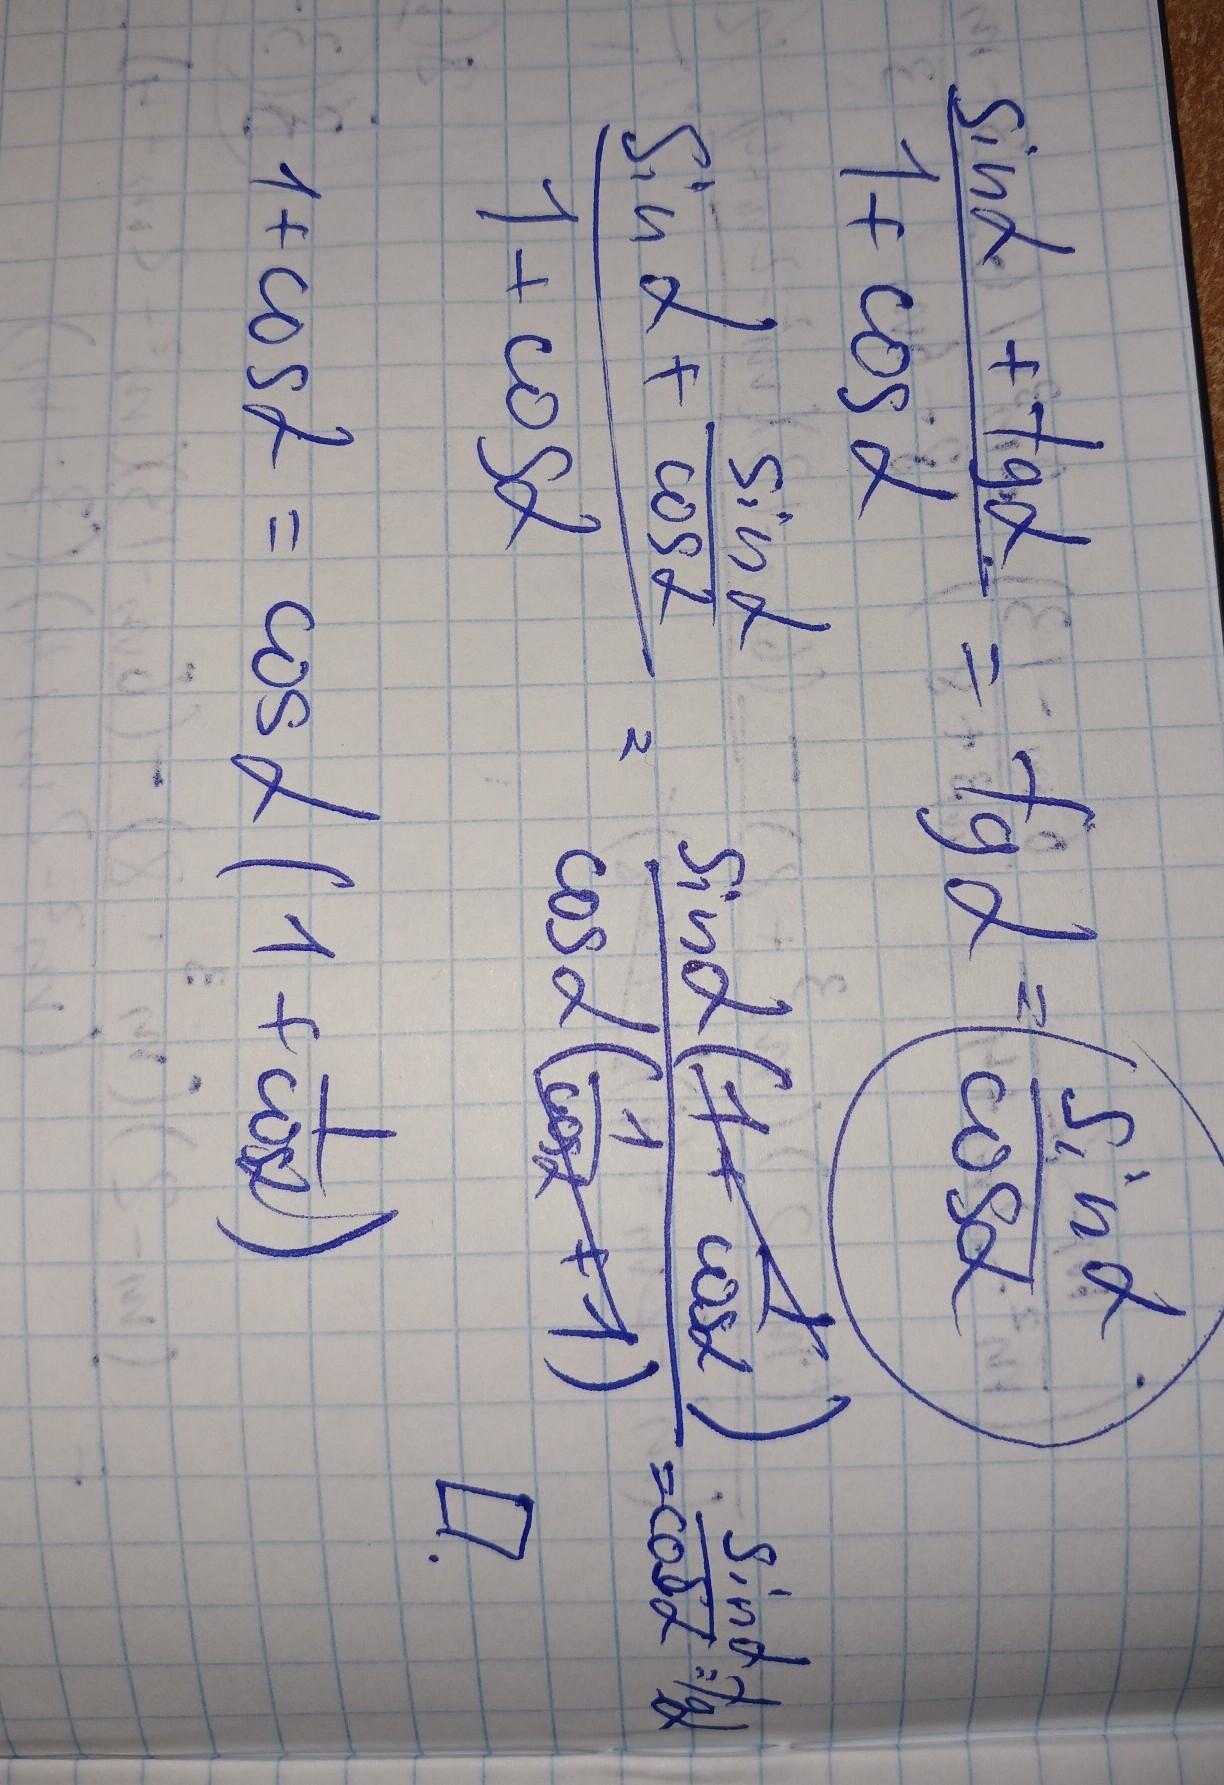 (sinα + tgα)/(1 + cosα) = tgα = sinα/cosα
(sinα + sinα/cosα)/(1 + cosα) = sinα(1 + 1/cosα)/cosα(1/cosα + 1) = sinα/cosα = tgα
1 + cosα = cosα(1 + 1/cosα) □.